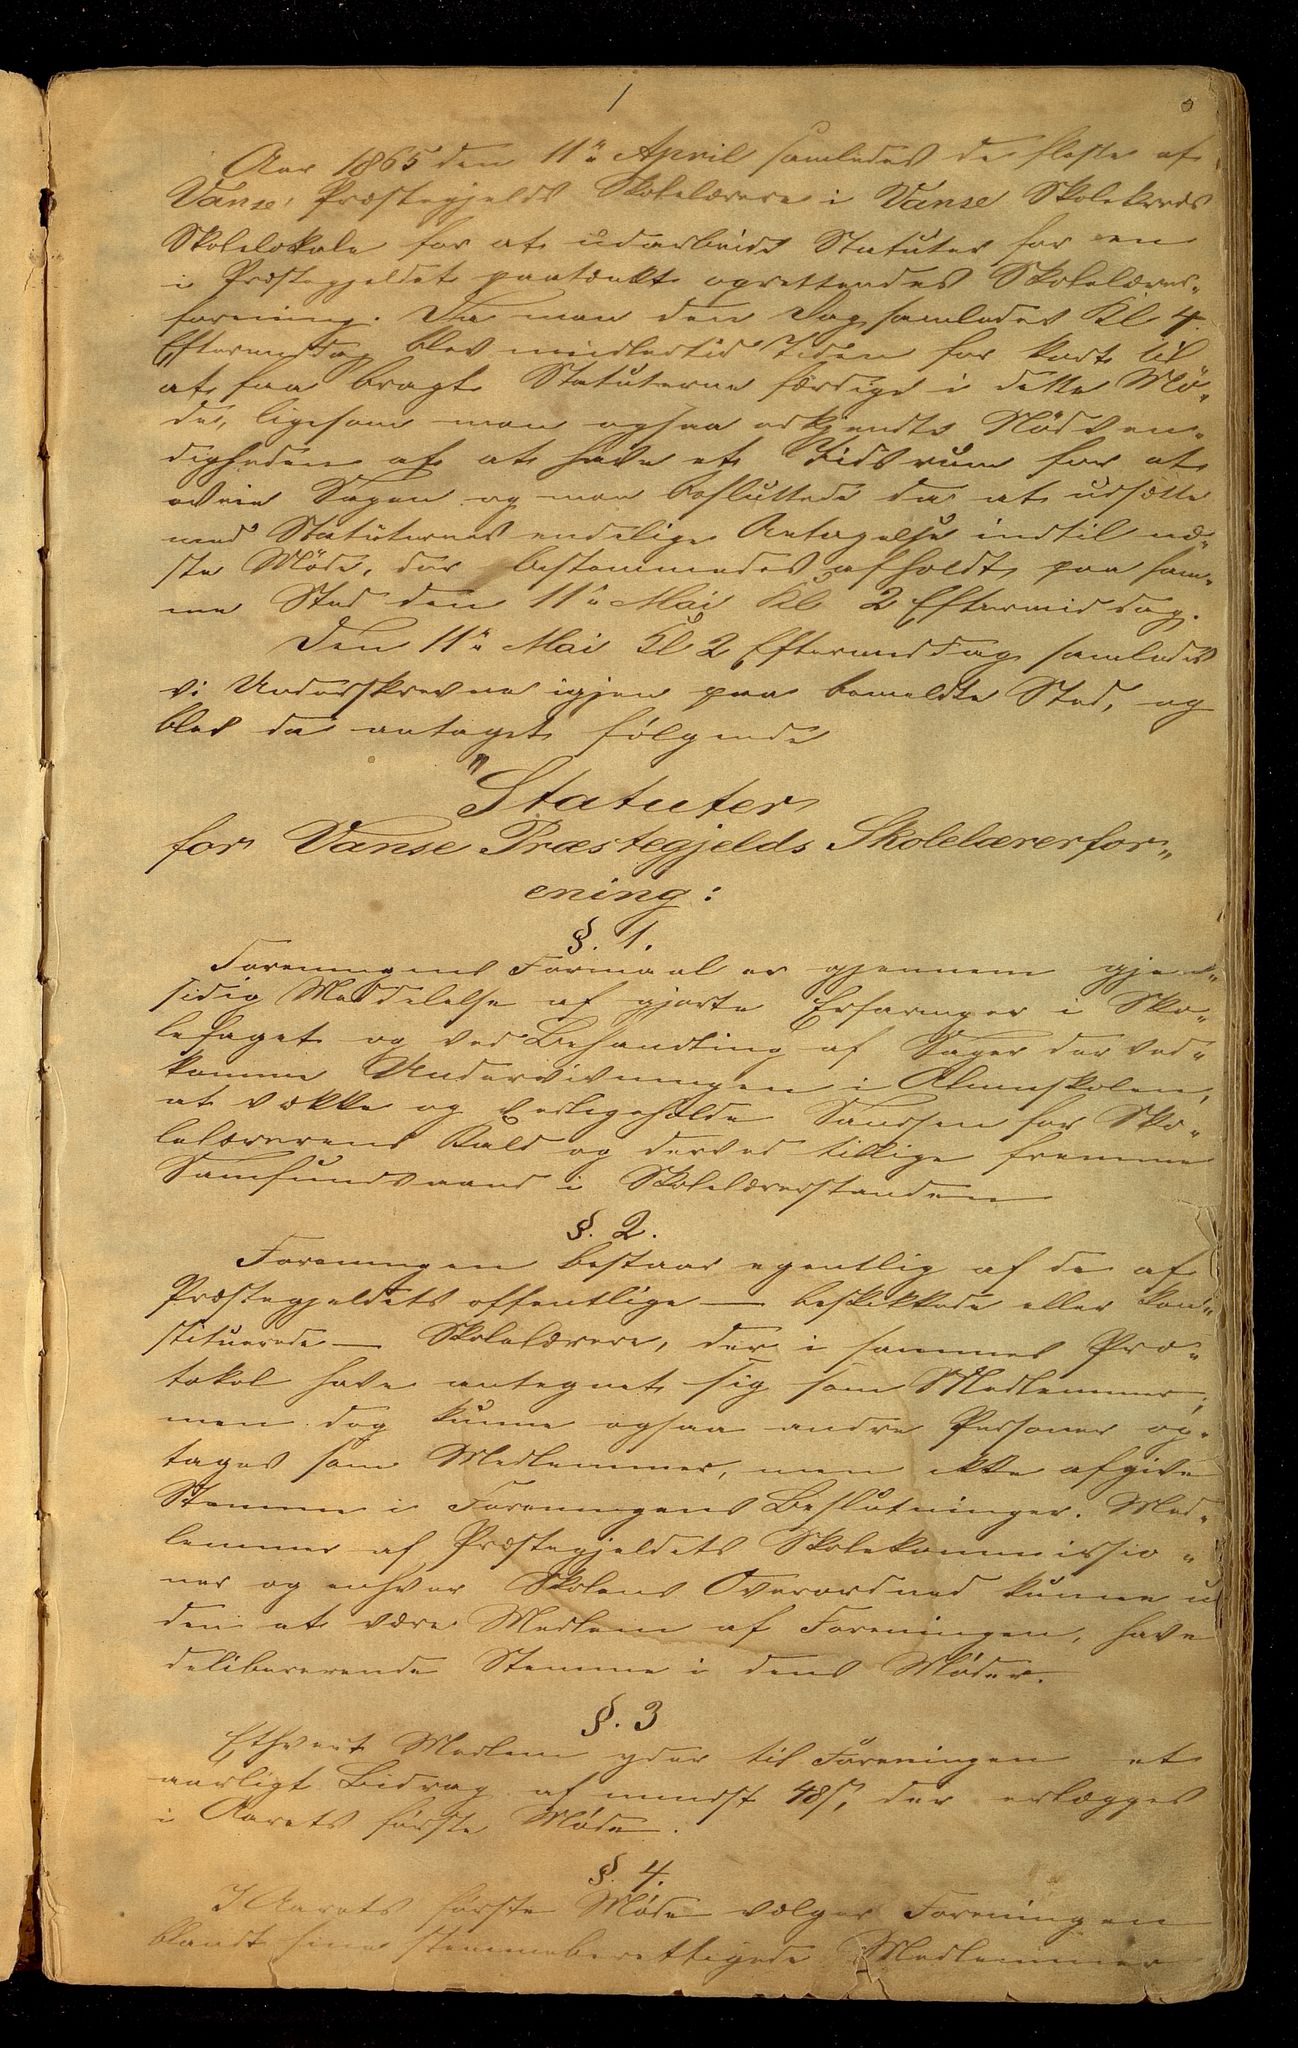 1
Aar 1865 den 11te April samledes de fleste af
Vanse Præstegjelds Skolelærere i Vanse Skolekreds
Skolelokale for at udarbeide Statuter for en
i Præstegjeldet paatænkt oprettendes Skolelærer„
forening. Da man den Dag samledes Kl 4
Eftermiddag blev imidlertid Tiden for kort til
at faa bragt Statuterne færdige i dette Mö„
de, ligesom man ogsaa erkjendte Nödven„
digheden af at have et Tidsrum for at
oveie Sagen og man besluttede da at udsætte
med Statuternes endelige Antagelse indtil næ„
ste Möde, der bestemmedes afholdt paa sam„
me Sted den 11te Mai Kl 2 Eftermiddag.
Den 11te Mai Kl 2 Eftermiddag samledes
vi Underskrevne igjen paa bemeldte Sted, og
blev da antaget følgende
"Statuter
for Vanse Præstegjelds Skolelærerfor„
ening:
§. 1.
Foreningens Formaal er gjennem gjen„
sidig Meddelelse af gjorte Erfaringer i Sko„
lefaget og ved Behandling af Sager der ved„
komme Undervisningen i Almuskolen,
at vække og vedligeholde Sandsen for Sko„
lelærerens Kald og derved tillige fremme
Samfundsaand i Skolelærerstanden
§. 2.
Foreningen bestaar egentlig af de af
Præstegjeldets offentlige — beskikkede eller kon„
stituerede — Skolelærere, der i sammes Pro„
tokol have antegnet sig som Medlemmer,
men dog kunne ogsaa andre Personer op„
tages som Medlemmer, men ikke afgive
Stemme i Foreningens Beslutninger. Med„
lemmer af Præstegjeldets Skolekommissio„
ner og enhver Skolens Overordned kunne u
den at være Medlem af Foreningen, have
delibererende Stemme i dens Møder.
§. 3
Ethvert Medlem yder til Foreningen et
aarligt Bidrag af mindst 48ß, der erlægges
i Aarets første Møde.
§. 4.
I Aarets første Møde vælger Foreningen
blandt sine stemmeberettigede Medlemmer